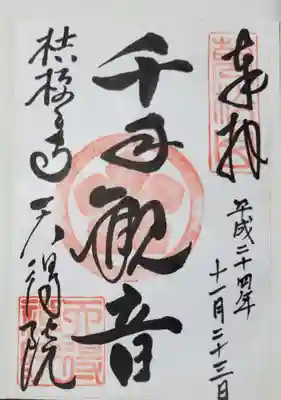 奉拝
平成二十四年
十一月二十三日
千手観音
桔梗寺 天得院